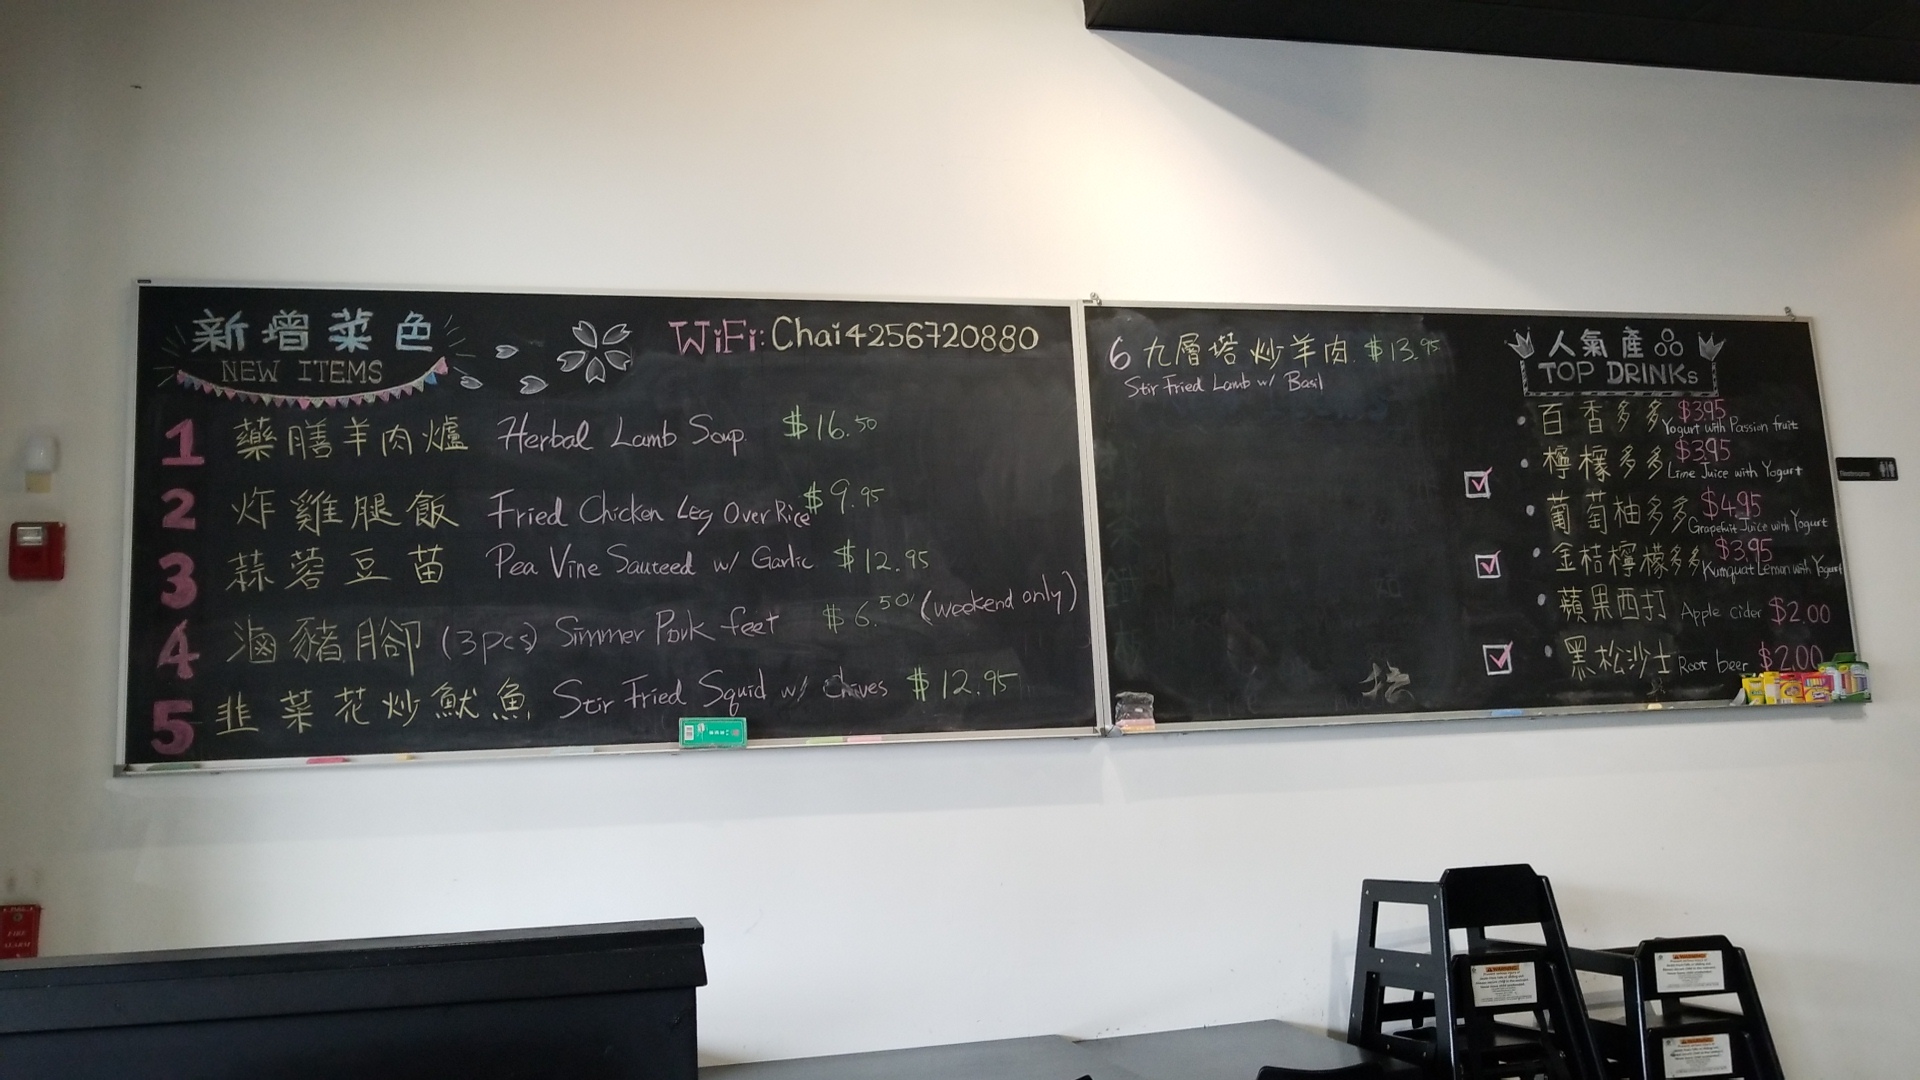 新增菜色
NEW ITEMS
WiFi: Chai4256720880
1 藥膳羊肉爐 Herbal Lamb Soup $16.50
2 炸雞腿飯 Fried Chicken Leg Over Rice $9.95
3 蒜蓉豆苗 Pea Vine Sauteed w/ Garlic $12.95
4 滷豬腳 (3pcs) Simmer Pork feet $6.50 (weekend only)
5 韭菜花炒魷魚 Stir Fried Squid w/ Chives $12.95
6 九層塔炒羊肉 $13.95
Stir Fried Lamb w/ Basil
人氣產品
TOP DRINKs
百香多多 $3.95
Yogurt with Passion fruit
檸檬多多 $3.95
Lime Juice with Yogurt
葡萄柚多多 $4.95
Grapefruit Juice with Yogurt
金桔檸檬多多 $3.95
Kumquat Lemon with Yogurt
蘋果西打 Apple cider $2.00
黑松沙士 Root beer $2.00
Restrooms
FIRE
ALARM
WARNING
WARNING
WARNING